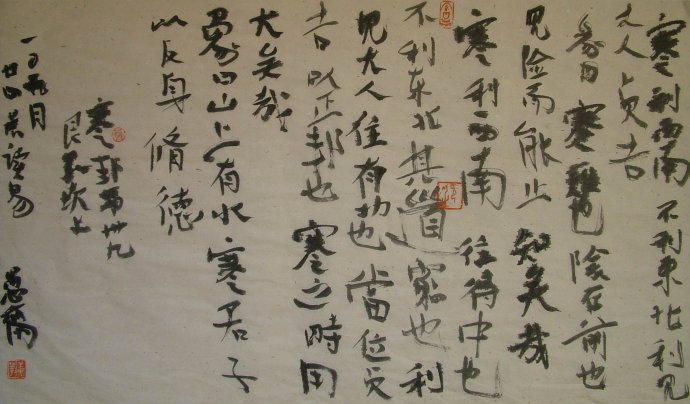 蹇利西南 不利東北 利見
大人貞吉
彖曰 蹇難也 險在前也
見險而能止 知矣哉
蹇利西南 往得中也
不利東北其道窮也 利
見大人往有功也 當位貞
吉 以正邦也 蹇之時用
大矣哉
象曰山上有水 蹇君子
以反身脩德
蹇卦第卅九
艮坎上
月
廿四讀易